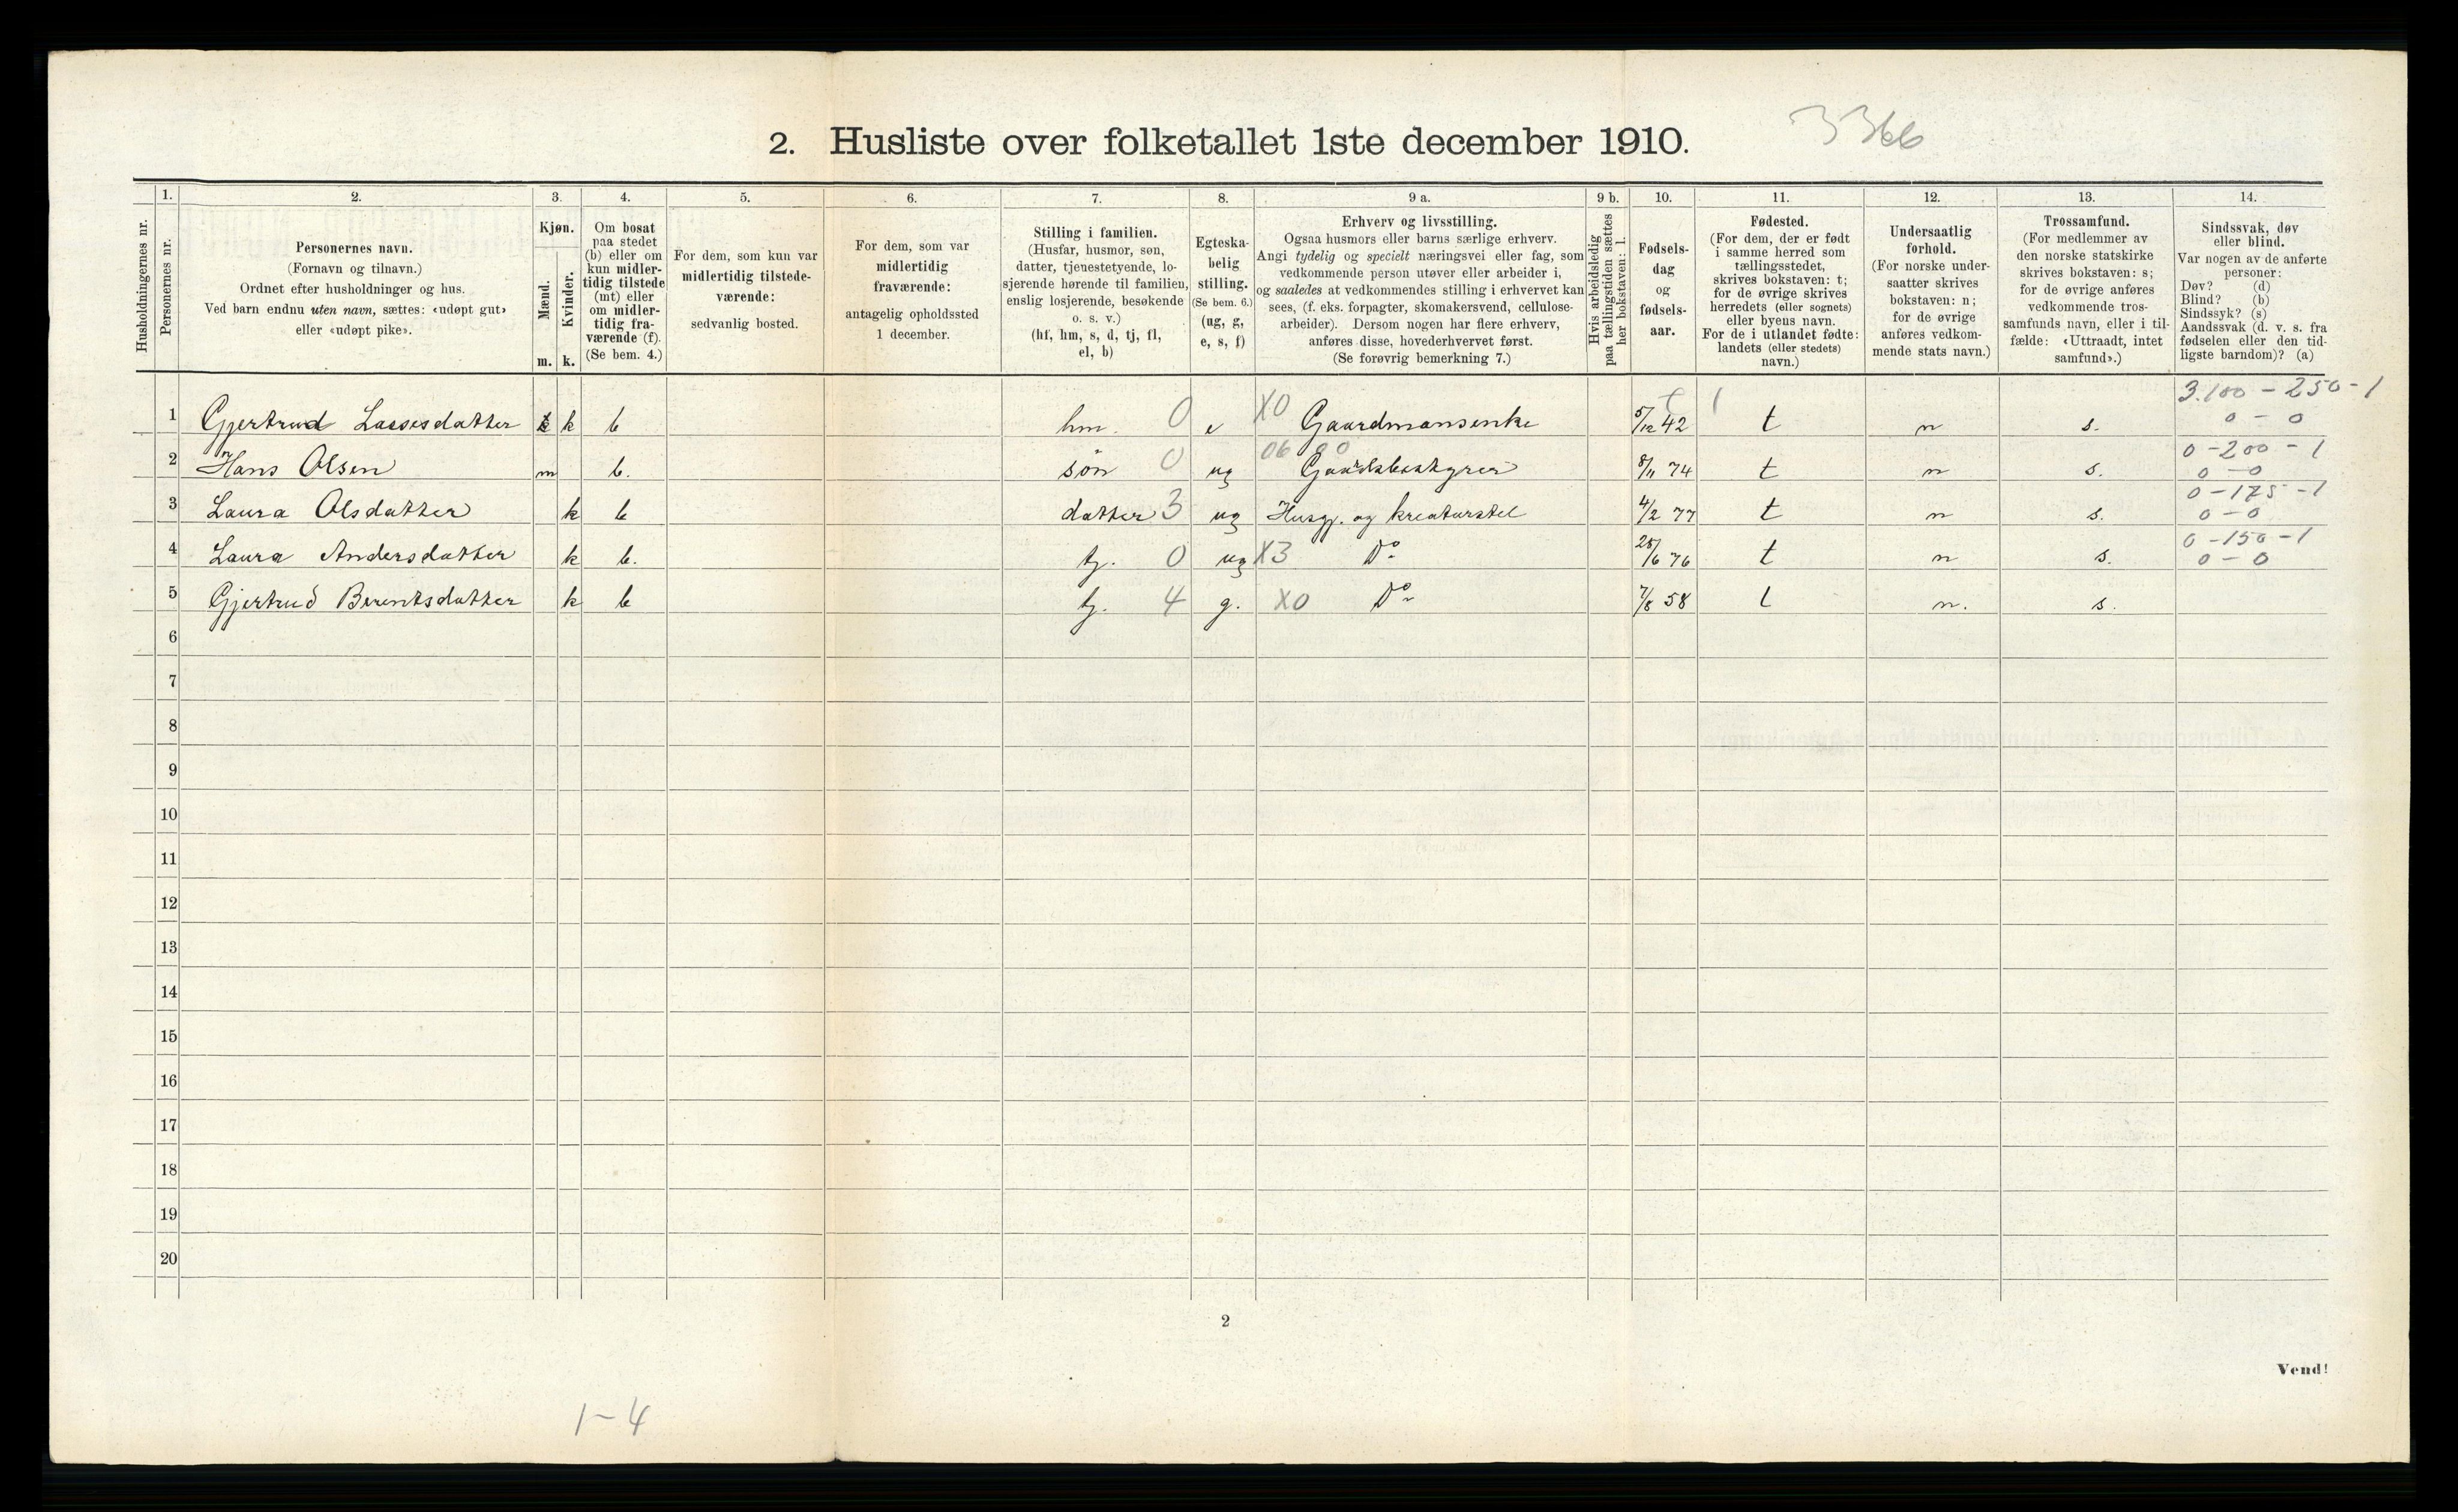 2. Husliste over folketallet 1ste december 1910.
3366
Husholdningernes nr.
1.
Personernes nr.
2.
Personernes navn.
(Fornavn og tilnavn.)
Ordnet efter husholdninger og hus.
Ved barn endnu uten navn, sættes: «udøpt gut»
eller «udøpt pike».
3.
Kjøn.
Mænd.
Kvinder.
m. k.
4.
Om bosat
paa stedet
(b) eller om
kun midler-
tidig tilstede
(mt) eller
om midler-
tidig fra-
værende (f).
(Se bem. 4.)
5.
For dem, som kun var
midlertidig tilstede-
værende:
sedvanlig bosted.
6.
For dem, som var
midlertidig
fraværende:
antagelig opholdssted
1 december.
7.
Stilling i familien.
(Husfar, husmor, søn,
datter, tjenestetyende, lo-
sjerende hørende til familien,
enslig losjerende, besøkende
o. s. v.)
(hf, hm, s, d, tj, fl,
el, b)
8.
Egteska-
belig
stilling.
(Se bem. 6.)
(ug, g,
e, s, f)
9 a.
Erhverv og livsstilling.
Ogsaa husmors eller barns særlige erhverv.
Angi tydelig og specielt næringsvei eller fag, som
vedkommende person utøver eller arbeider i,
og saaledes at vedkommendes stilling i erhvervet kan
sees, (f. eks. forpagter, skomakersvend, cellulose-
arbeider). Dersom nogen har flere erhverv,
anføres disse, hovederhvervet først.
(Se forøvrig bemerkning 7.)
9 b.
Hvis arbeidsledig
paa tællingstiden sættes
her bokstaven: l.
10.
Fødsels-
dag
og
fødsels-
aar.
11.
Fødested.
(For dem, der er født
i samme herred som
tællingsstedet,
skrives bokstaven: t;
for de øvrige skrives
herredets (eller sognets)
eller byens navn.
For de i utlandet fødte:
landets (eller stedets)
navn.)
12.
Undersaatlig
forhold.
(For norske under-
saatter skrives
bokstaven: n;
for de øvrige
anføres vedkom-
mende stats navn.)
13.
Trossamfund.
(For medlemmer av
den norske statskirke
skrives bokstaven: s;
for de øvrige anføres
vedkommende tros-
samfunds navn, eller i til-
fælde: «Uttraadt, intet
samfund».)
14.
Sindssvak, døv
eller blind.
Var nogen av de anførte
personer:
Døv? (d)
Blind? (b)
Sindssyk? (s)
Aandssvak (d. v. s. fra
fødselen eller den tid-
ligste barndom)? (a)
3.100 - 250 - 1
1 Gjertrud Lassesdatter k b hm. 0 e X0 Gaardmansenke 5/12 42 t n s. 0 - 0
0 - 200 - 1
2 Hans Olsen m b. søn 0 ug Gaardsbestyrer 8/11 74 t n s. 0 - 0
0 - 175 - 1
3 Laura Olsdatter k b datter 3 ug Husgj. og kreaturstel 4/2 77 t n s. 0 - 0
0 - 150 - 1
4 Laura Andersdatter k b. tj. 0 ug X3 Do 25/6 76 t n s. 0 - 0
5 Gjertrud Berentsdatter k b tj. 4 g. X0 Do 7/8 58 t n. s.
6
7
8
9
10
11
12
13
14
15
16
17
18
19
20
2
Vend!
1-4